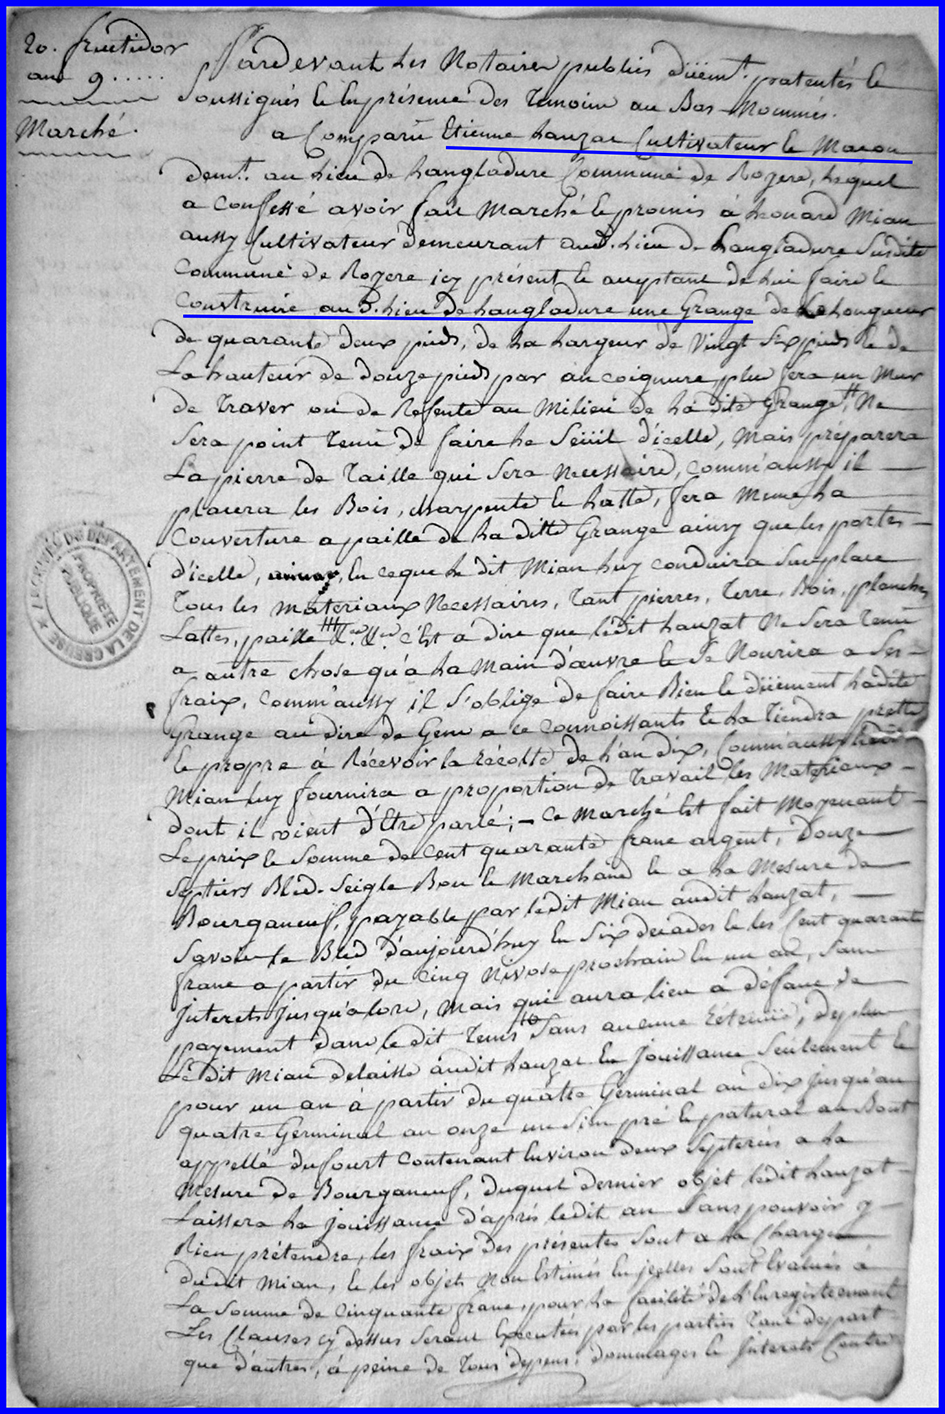 20. fructidor
an 9.....
Marché.
Pardevant Les Notaires publics düemt. patentés &
Soussignés & En présence des Temoins au Bas Nommés.
a Comparu Etienne Lanzac Cultivateur & Maçon
demt. au Lieu de Langladure Commune de Royere, Lequel
a Confessé avoir fait Marché & promis à Leonard Mian
aussy Cultivateur demeurant aud. Lieu de Langladure Susdite
Commune de Royere icy présent & acceptant de Lui faire &
Construire au d. Lieu de Langladure une Grange de La Longueur
de quarante deux pieds, de La Largeur de Vingt Six pieds & de
La hauteur de douze pieds par an coignure, plus fera un Mur
de Traver ou de Refente au Milieu de La dite Grange, Ne
Sera point Tenu de faire Le Seüil d'icelle, Mais préparera
La pierre de Taille qui Sera Necessaire, comm'aussy il
placera les Bois, charpente & Latte, fera Meme La
Couverture a paille de La ditte Grange ainsy que les portes
d'icelle, En ce que Le dit Mian Luy conduira Sur place
Tous les materiaux Necessaires, Tant pierres, Terre, Bois, planches
Lattes, paille c'Est a dire que ledit Lanzat Ne Sera Tenu
a autre chose qu'a La Main d'œuvre & Se Nourira a Ses
fraix, comm'aussy il S'oblige de faire Bien & düement Ladite
Grange au dire de Gens a ce connoissants & La Tiendra prette
& propre à Récevoir la récolte de L'an dix, Comm'aussy Ledit
Mian Luy fournira a proportion de Travail les Materiaux
dont il vient d'Etre parlé; - Ce Marché Est fait Moyenant
Le prix & Somme de Cent quarante franc argent, Douze
Septiers Bled-Seigle Bon & Marchand & a La Mesure de
Bourganeuf, payable par ledit Mian audit Lanzat,
Savoir Le Bled d'aujourd'huy En Six decades & les Cent quarante
franc a partir du cinq Nivose prochain En un an, Sans
Interets Jusqu'alors, Mais qui aura lieu a défaut de
payement dans le dit Tems Sans aucune, deplus
Le dit Mian delaisse audit Lanzat En Jouissance Seulement &
pour un an à partir du quatre Germinal an dix jusqu'au
quatre Germinal an onze un Sien pré & patural au Bout
appellé Dufourt contenant Environ deux Septerées a La
Mesure de Bourganeuf, duquel dernier objet ledit Lanzat
Laissera La jouissance d'après ledit an Sans pouvoir y
Rien prétendre, les fraix des présentes Sont a La Charge
dudit Mian, & les objets Non Estimés En jcelles Sont Evalués a
La Somme de Cinquante franc, pour La facilité de L'Enregistrement
Les Clauses cy dessus Seront Executées par les parties Tant depart
que d'autres, à peine de Tous depens, dommages & Interets Contre
ARCHIVES DU DÉPARTEMENT DE LA CREUSE
PROPRIÉTÉ PUBLIQUE